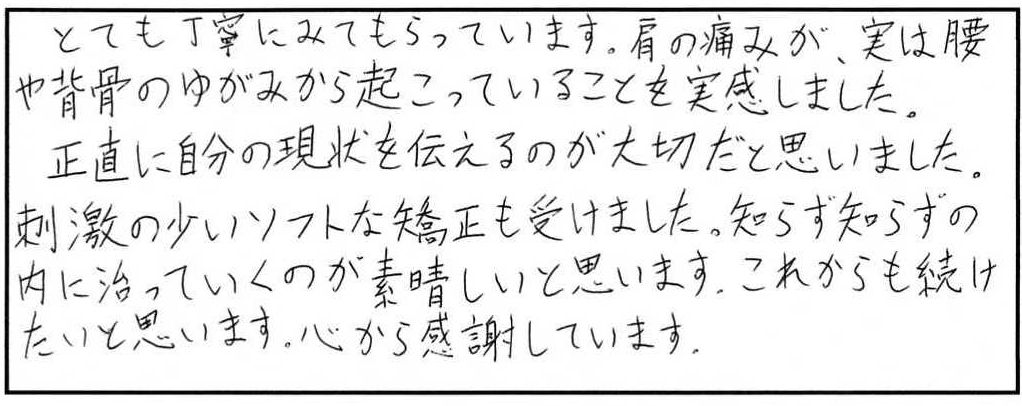 とても丁寧にみてもらっています。肩の痛みが、実は腰
や背骨のゆがみから起こっていることを実感しました。
正直に自分の現状を伝えるのが大切だと思いました。
刺激の少いソフトな矯正も受けました。知らず知らずの
内に治っていくのが素晴しいと思います。これからも続け
たいと思います。心から感謝しています。